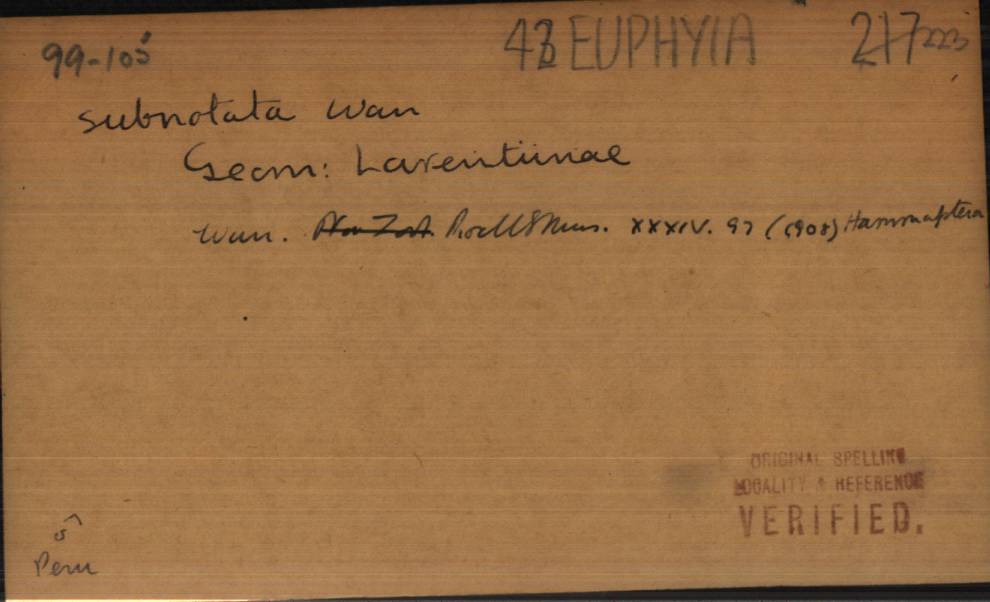 99-105 43 EUPHYIA 217 223
subnotata Warr
Geom: Larentiinae
Warr. Nov Zool. Proc U S Mus. XXXIV. 97 (1908) Hammaptera
ORIGINAL SPELLING
LOCALITY & REFERENCE
VERIFIED.
♂
Peru